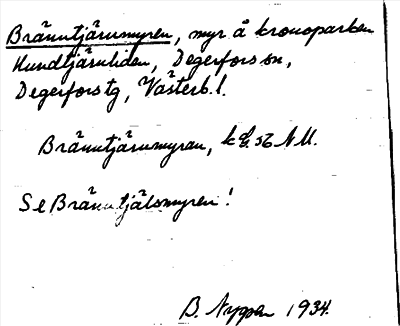 Bränntjärnmyren, myr å kronoparken
Hundtjärnliden, Degerfors sn,
Degerfors tg, Västerb. l.
Bränntjärnmyran, k bl. 56 N.M.
Se Bränntjälsmyren!
B. Nygren 1934.